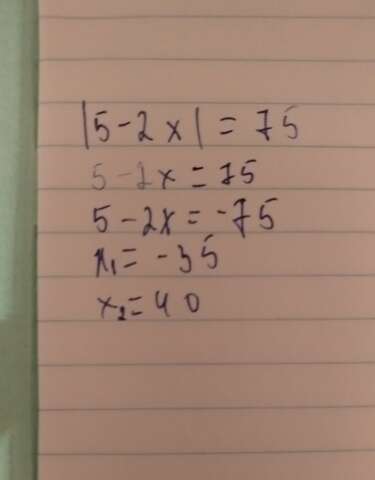 |5-2x| = 75
5-2x = 75
5-2x = -75
x₁ = -35
x₂ = 40